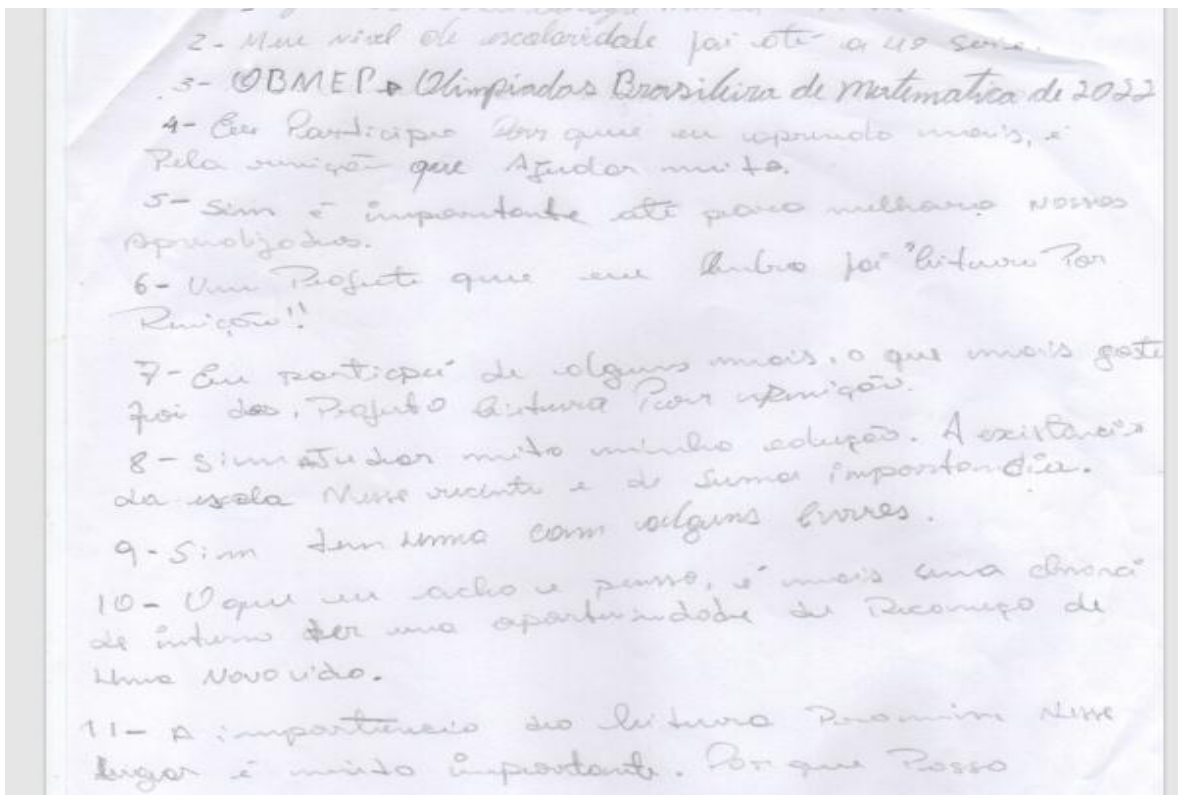 2- Meu nivel de escolaridade foi até a 4º serie.
3- OBMEP Olimpiadas Brasileira de Matematica de 2022
4- Eu Participo Por que eu aprendo mais, é
Pela remição que Ajudar muito.
5- Sim é importante até para melhorar Nossos
Aprendizados.
6- Um Projeto que eu lembro foi "leitura Por
Remição"!
7- Eu particpei de alguns mais. o que mais goste
foi dos, Projeto leitura Por remição.
8- Sim Ajudar muito minha edução. A existência
da escola Nesse recinto e de suma importancia.
9- Sim tem uma com alguns livros.
10- O que eu acho e penso, é mais uma chance
de interno ter uma oportunidade de Recomeço de
uma Nova vida.
11- A importancia da leitura Para mim Nesse
lugar é muito importante. Por que Posso